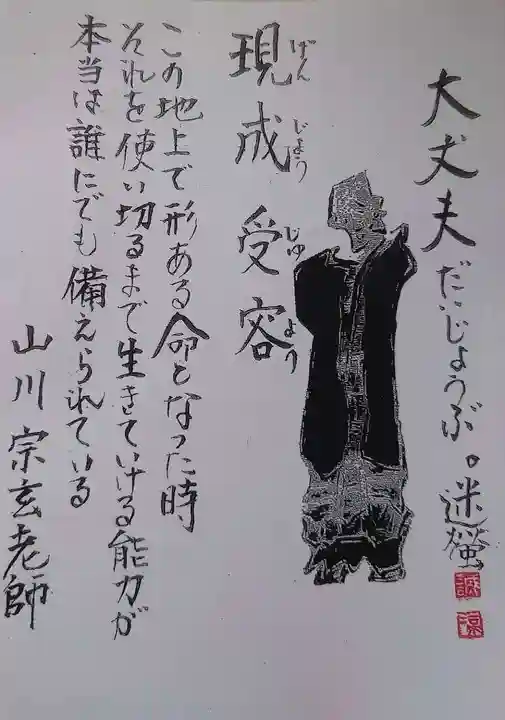 大丈夫 だいじょうぶ。迷螢
現成受容
げん じょう じゅ よう
この地上で形ある命となった時
それを使い切るまで生きていける能力が
本当は誰にでも備えられている
山川宗玄老師